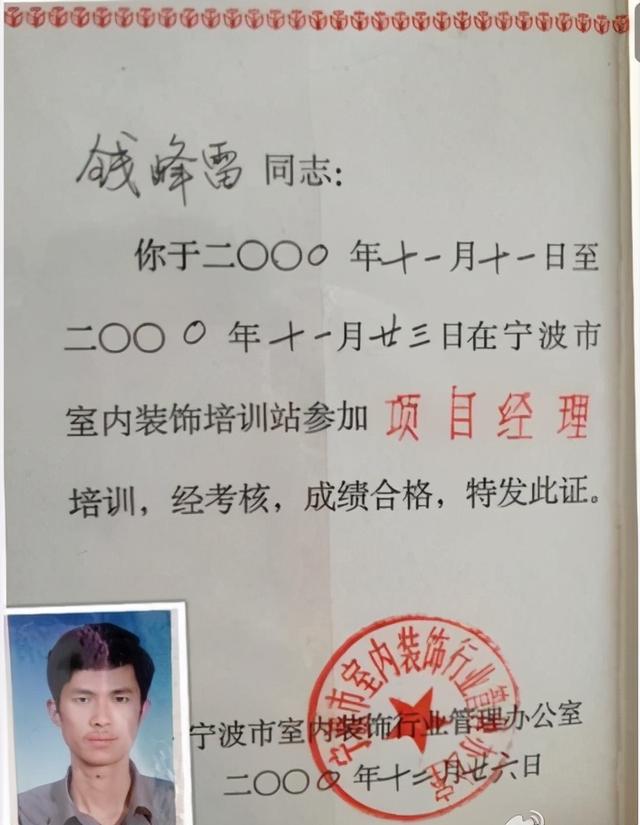 钱峰雷同志：
你于二〇〇〇年十一月十一日至
二〇〇〇年十一月廿三日在宁波市
室内装饰培训站参加项目经理
培训，经考核，成绩合格，特发此证。
宁波市室内装饰行业管理办公室
宁波市室内装饰行业管理办公室
二〇〇〇年十二月廿六日